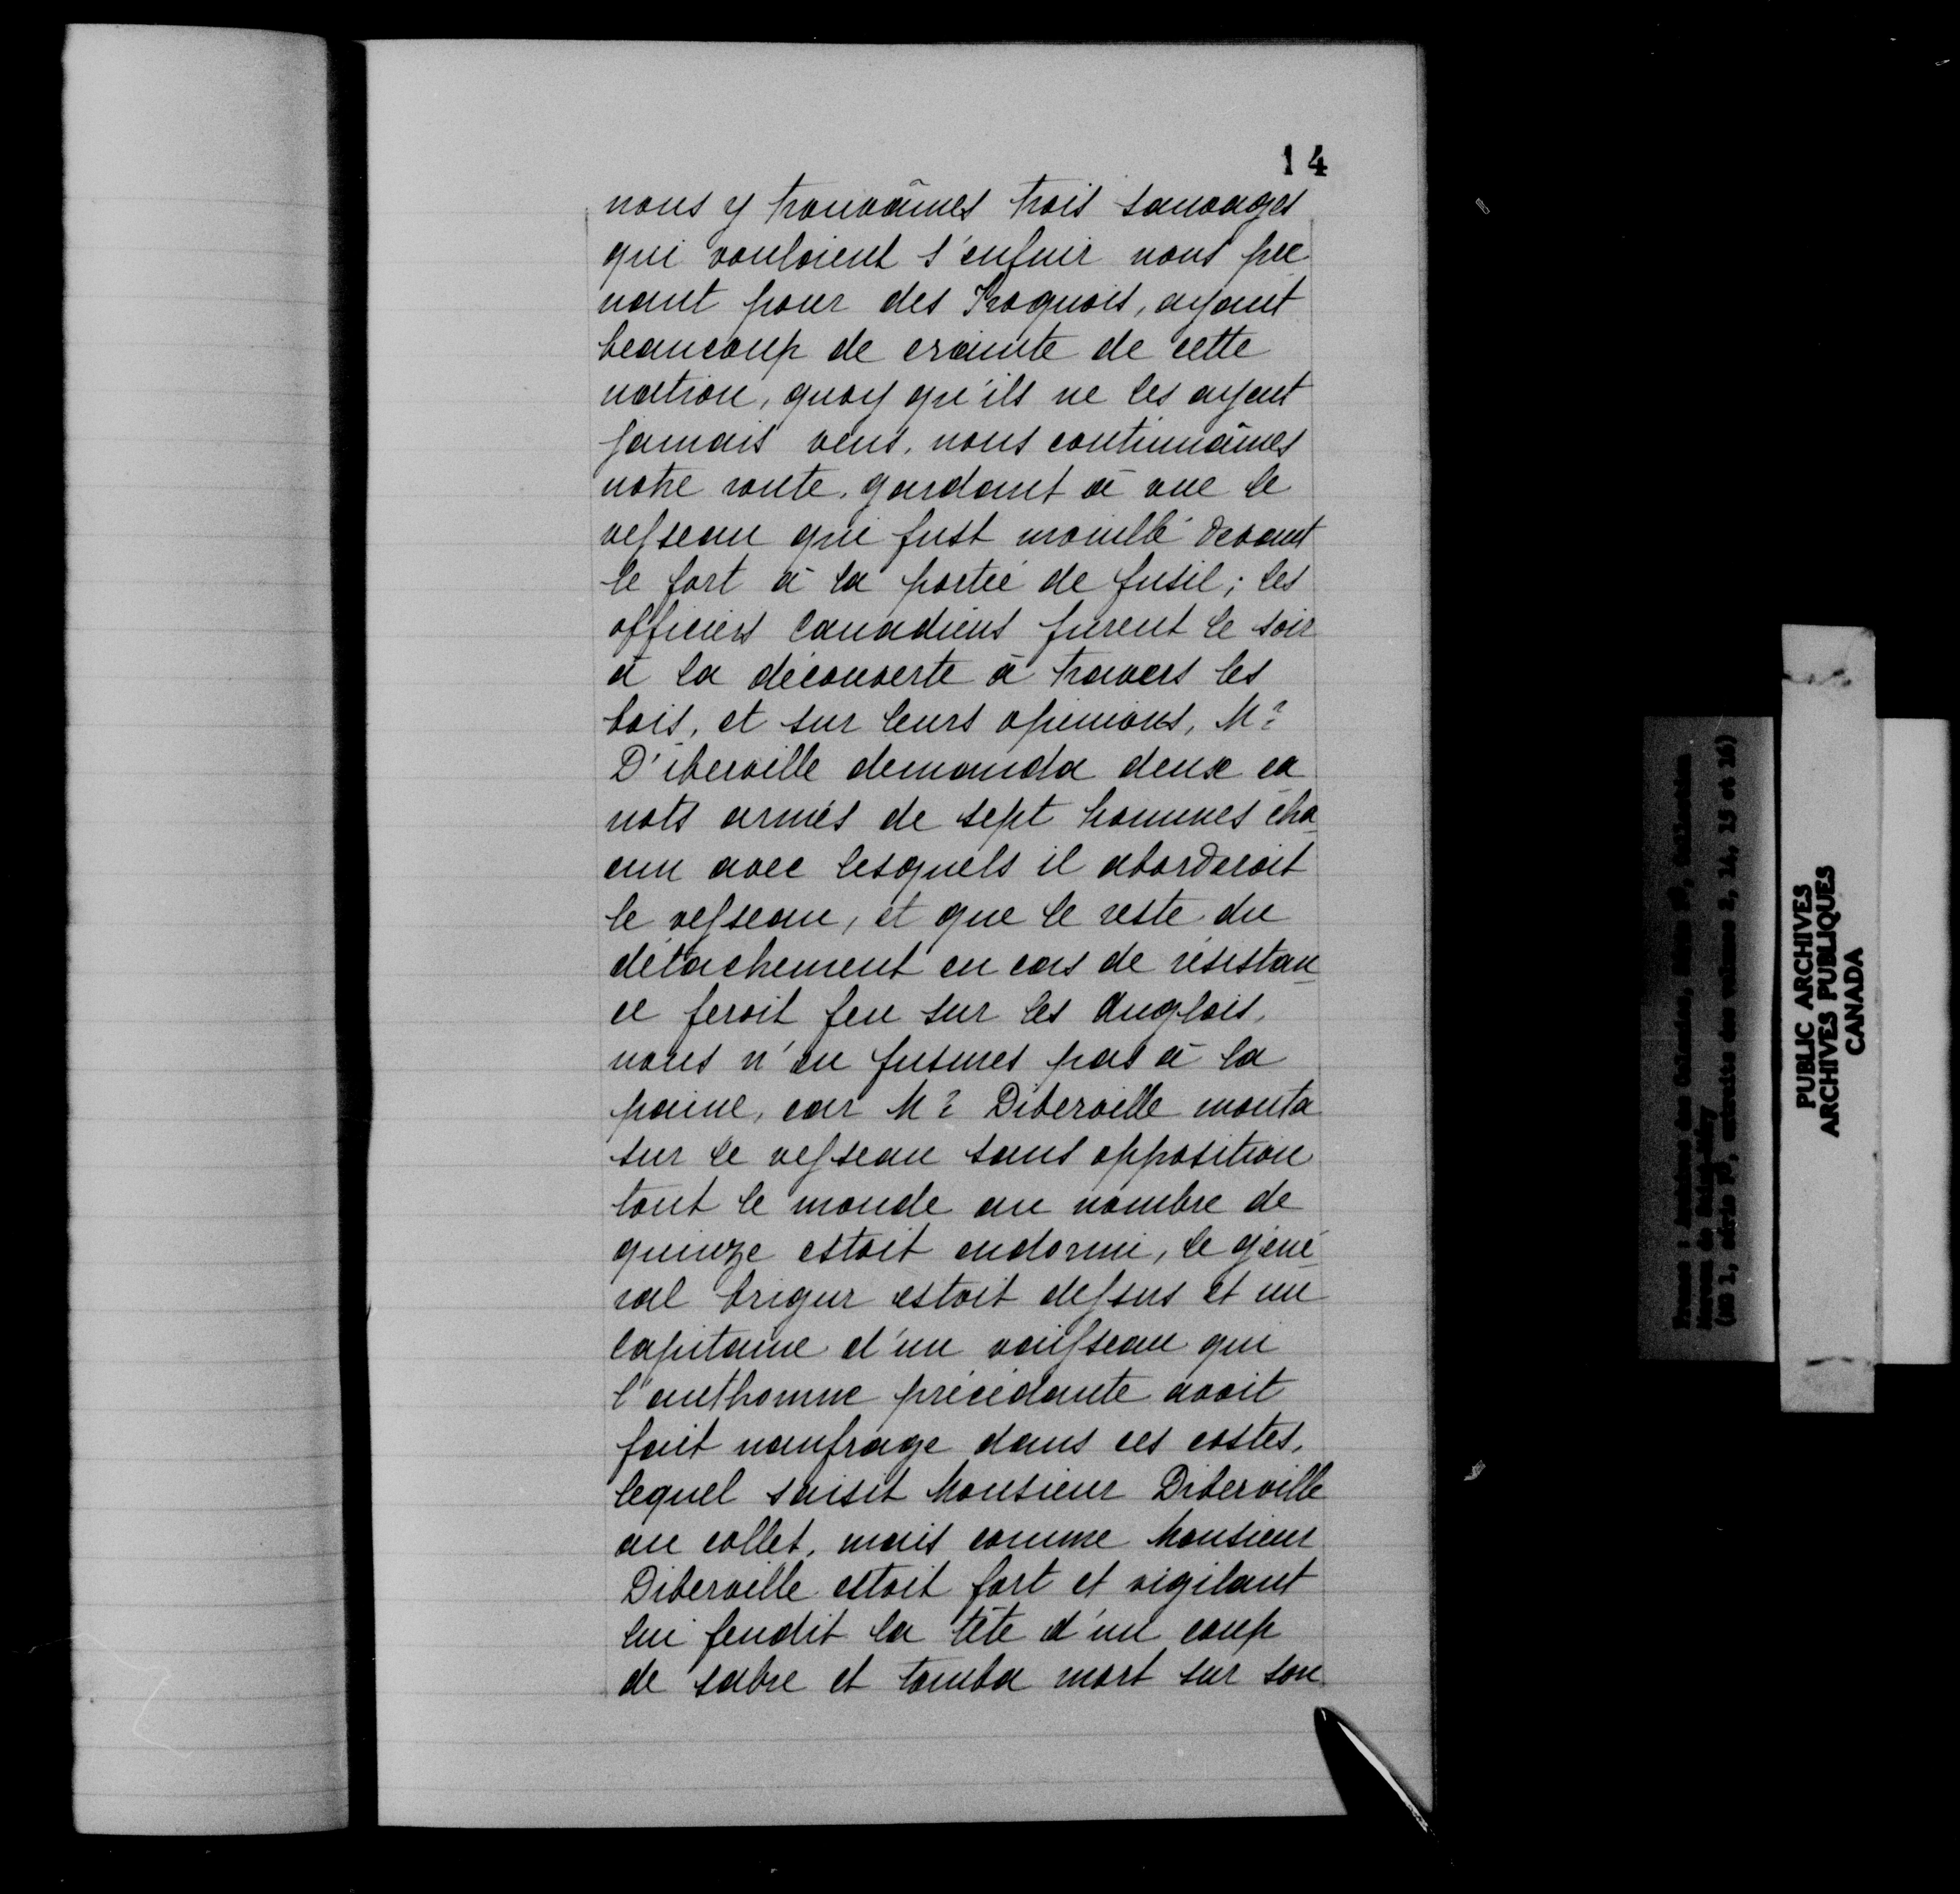 14
nous y trouvâmes trois sauvages
qui vouloient s'enfuir nous pre
nant pour des Iroquois, ayant
beaucoup de crainte de cette
nation, quoy qu'ils ne les ayent
jamais veus, nous continuâmes
notre route, gardant à vue le
vesseau qui fust mouillé devant
le fort à la portée de fusil; les
officiers Canadiens furent le soir
à la découverte à travers les
bois, et sur leurs opinions, Mr
D'iberville demanda deux ca
nots armés de sept hommes cha
cun avec lesquels il aborderoit
le vesseau, et que le reste du
détachement en cas de résistan
ce feroit feu sur les Anglois,
nous n'en fusmes pas à la
paine, car Mr Diberville monta
sur le vesseau sans opposition
tout le monde au nombre de
quinze estoit endormi, le géné
ral brigur estoit dessus et un
capitaine d'un vaisseau qui
l'authomne précédante avoit
fait naufrage dans ces costes,
lequel saisit Monsieur Diberville
au collet, mais comme Monsieur
Diberville estoit fort et vigilant
lui fendit la tête d'un coup
de sabre et tomba mort sur son
PUBLIC ARCHIVES
ARCHIVES PUBLIQUES
CANADA